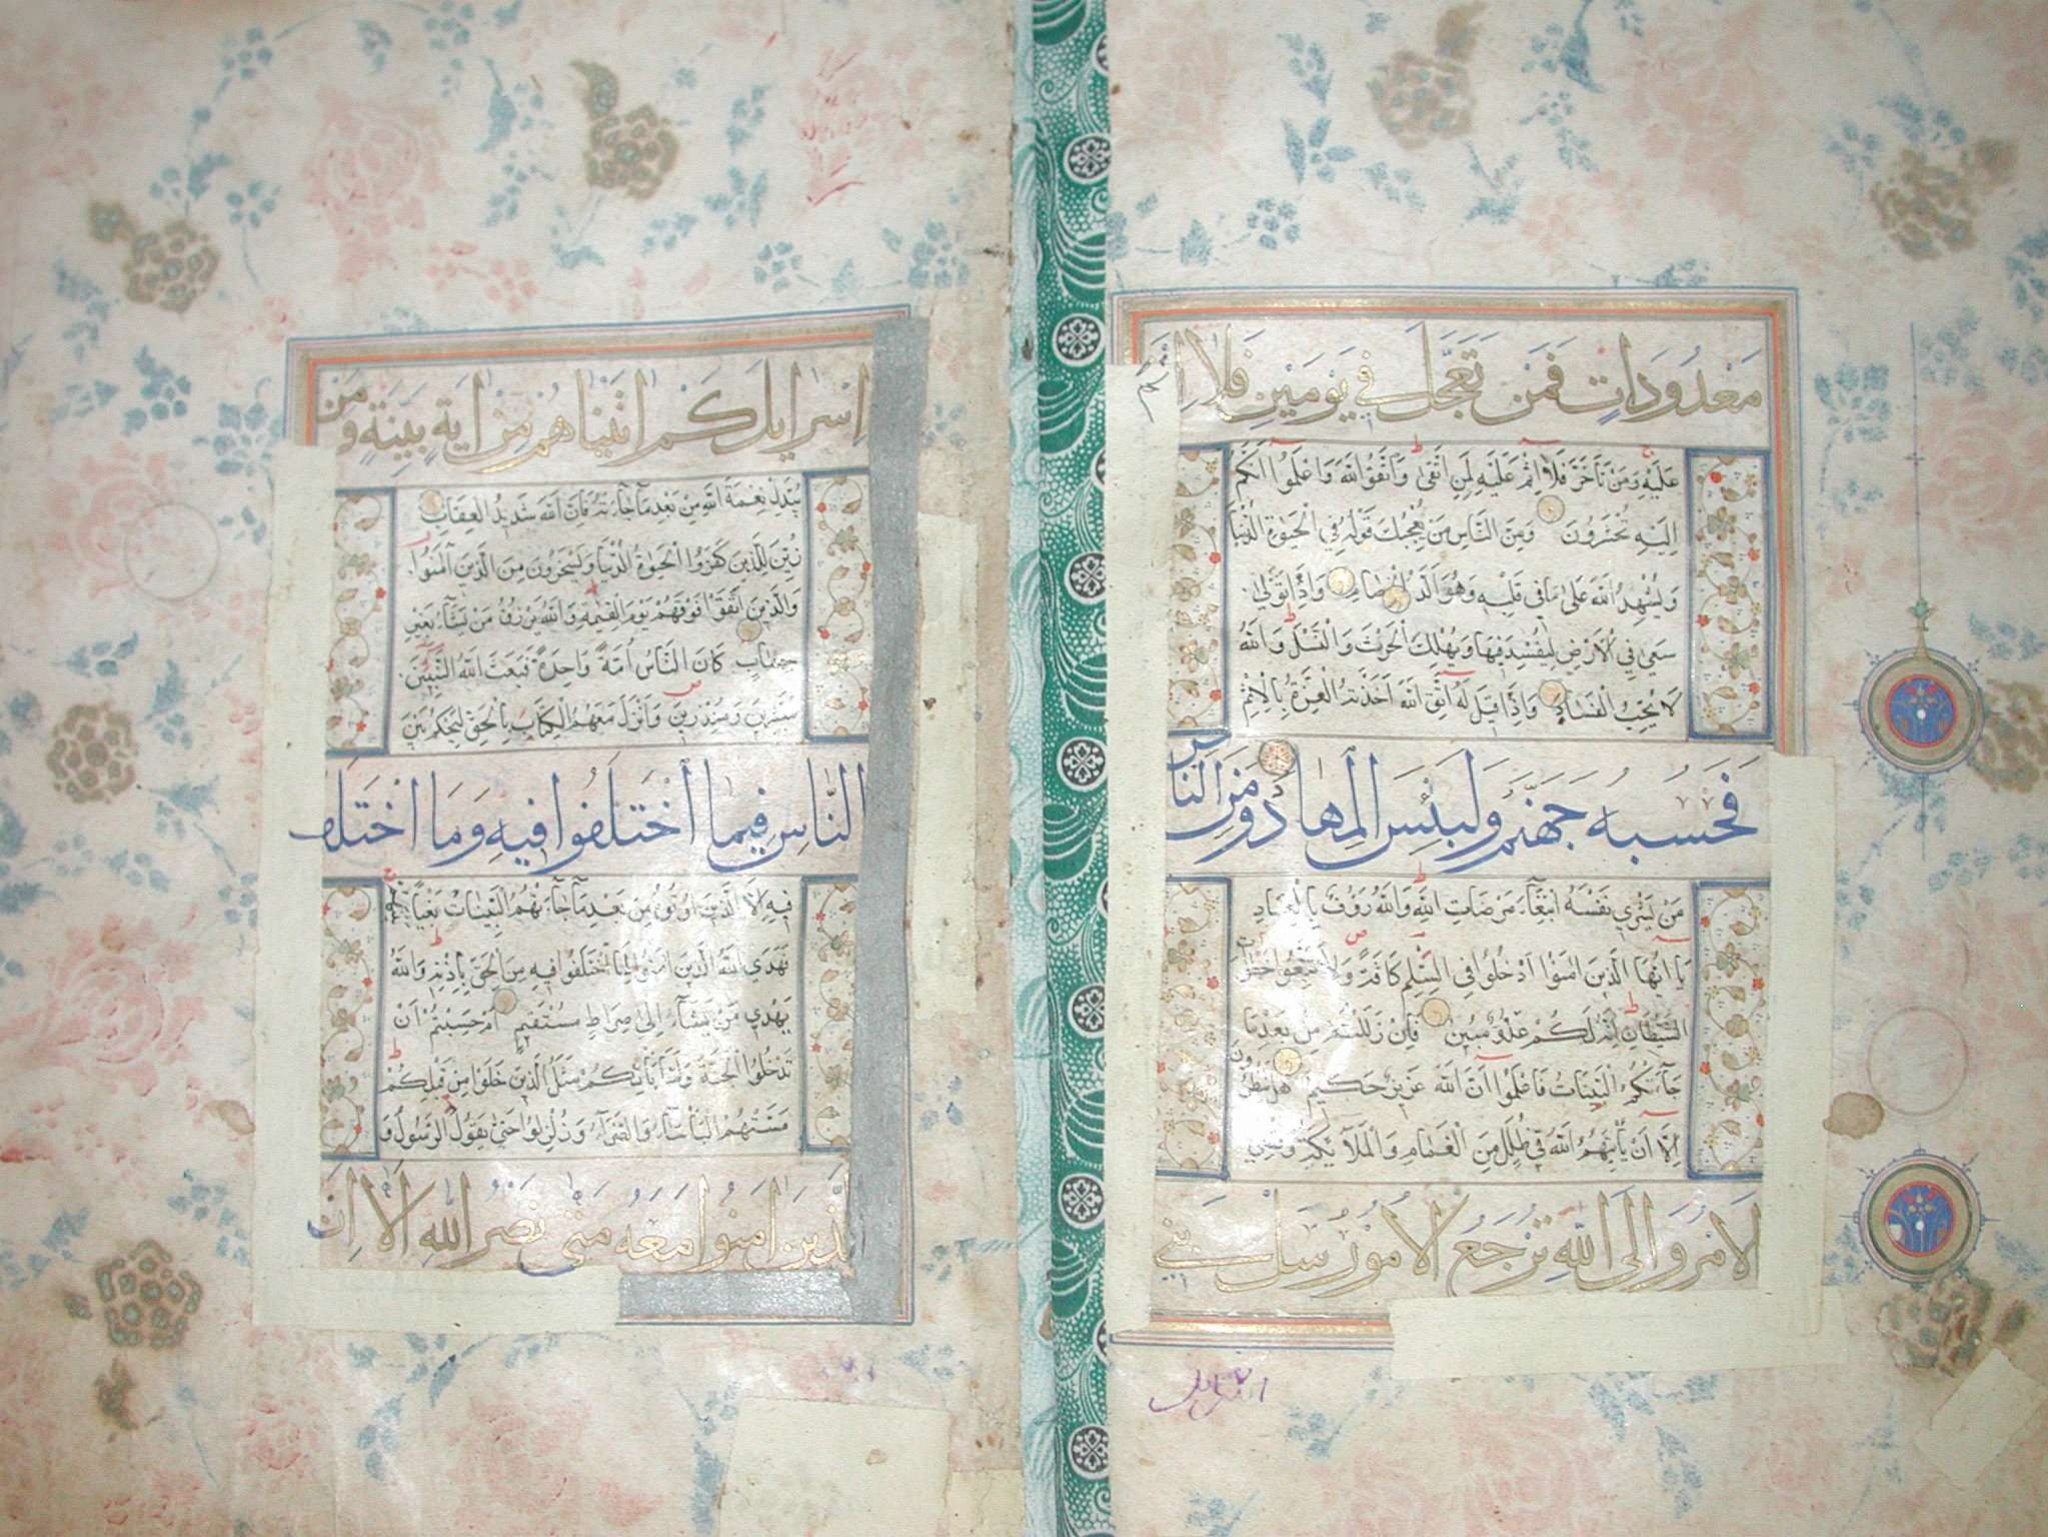 مَعْدُودَاتٍ فَمَن تَعَجَّلَ فِي يَوْمَيْنِ فَلَا اِثْمَ
عَلَيْهِ وَمَنْ تَأَخَّرَ فَلَا اِثْمَ عَلَيْهِ لِمَنِ اتَّقَىٰ وَاتَّقُوا اللّٰهَ وَاعْلَمُوا اَنَّكُمْ
اِلَيْهِ تُحْشَرُونَ وَمِنَ النَّاسِ مَنْ يُعْجِبُكَ قَوْلُهُ فِي الْحَيٰوةِ الدُّنْيَا
وَيُشْهِدُ اللّٰهَ عَلَىٰ مَا فِي قَلْبِهِ وَهُوَ اَلَدُّ الْخِصَامِ وَاِذَا تَوَلَّىٰ
سَعَىٰ فِي الْاَرْضِ لِيُفْسِدَ فِيهَا وَيُهْلِكَ الْحَرْثَ وَالنَّسْلَ وَاللّٰهُ
لَا يُحِبُّ الْفَسَادَ وَاِذَا قِيلَ لَهُ اتَّقِ اللّٰهَ اَخَذَتْهُ الْعِزَّةُ بِالْاِثْمِ
فَحَسْبُهُ جَهَنَّمُ وَلَبِئْسَ الْمِهَادُ وَمِنَ النَّاسِ
مَنْ يَشْرِي نَفْسَهُ ابْتِغَآءَ مَرْضَاتِ اللّٰهِ وَاللّٰهُ رَؤُفٌ بِالْعِبَادِ
يَا اَيُّهَا الَّذِينَ اٰمَنُوا ادْخُلُوا فِي السِّلْمِ كَافَّةً وَلَا تَتَّبِعُوا خُطُوَاتِ
الشَّيْطَانِ اِنَّهُ لَكُمْ عَدُوٌّ مُبِينٌ فَاِنْ زَلَلْتُمْ مِنْ بَعْدِ مَا
جَآءَتْكُمُ الْبَيِّنَاتُ فَاعْلَمُوا اَنَّ اللّٰهَ عَزِيزٌ حَكِيمٌ هَلْ يَنْظُرُونَ
اِلَّا اَنْ يَأْتِيَهُمُ اللّٰهُ فِي ظُلَلٍ مِنَ الْغَمَامِ وَالْمَلَآئِكَةُ وَقُضِيَ
الْاَمْرُ وَاِلَى اللّٰهِ تُرْجَعُ الْاُمُورُ سَلْ بَنِي
اِسْرَايِلَ كَمْ اٰتَيْنَاهُمْ مِنْ اٰيَةٍ بَيِّنَةٍ وَمَنْ
يُبَدِّلْ نِعْمَةَ اللّٰهِ مِنْ بَعْدِ مَا جَآءَتْهُ فَاِنَّ اللّٰهَ شَدِيدُ الْعِقَابِ
زُيِّنَ لِلَّذِينَ كَفَرُوا الْحَيٰوةُ الدُّنْيَا وَيَسْخَرُونَ مِنَ الَّذِينَ اٰمَنُوا
وَالَّذِينَ اتَّقَوْا فَوْقَهُمْ يَوْمَ الْقِيٰمَةِ وَاللّٰهُ يَرْزُقُ مَنْ يَشَآءُ بِغَيْرِ
حِسَابٍ كَانَ النَّاسُ اُمَّةً وَاحِدَةً فَبَعَثَ اللّٰهُ النَّبِيِّينَ
مُبَشِّرِينَ وَمُنْذِرِينَ وَاَنْزَلَ مَعَهُمُ الْكِتَابَ بِالْحَقِّ لِيَحْكُمَ بَيْنَ
النَّاسِ فِيمَا اخْتَلَفُوا فِيهِ وَمَا اخْتَلَفَ
فِيهِ اِلَّا الَّذِينَ اُوتُوهُ مِنْ بَعْدِ مَا جَآءَتْهُمُ الْبَيِّنَاتُ بَغْيًا بَيْنَهُمْ
فَهَدَى اللّٰهُ الَّذِينَ اٰمَنُوا لِمَا اخْتَلَفُوا فِيهِ مِنَ الْحَقِّ بِاِذْنِهِ وَاللّٰهُ
يَهْدِي مَنْ يَشَآءُ اِلَىٰ صِرَاطٍ مُسْتَقِيمٍ اَمْ حَسِبْتُمْ اَنْ
تَدْخُلُوا الْجَنَّةَ وَلَمَّا يَأْتِكُمْ مَثَلُ الَّذِينَ خَلَوْا مِنْ قَبْلِكُمْ
مَسَّتْهُمُ الْبَأْسَآءُ وَالضَّرَّآءُ وَزُلْزِلُوا حَتَّىٰ يَقُولَ الرَّسُولُ وَ
الَّذِينَ اٰمَنُوا مَعَهُ مَتَىٰ نَصْرُ اللّٰهِ اَلَا اِنَّ